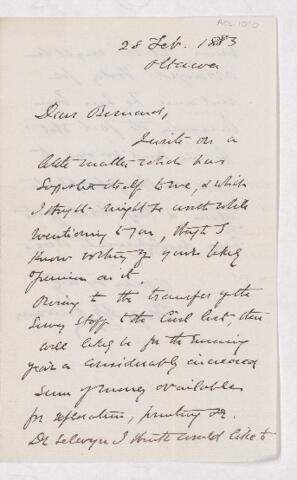 ACC. 1010
28 Feb. 1883
Ottawa
Dear Bernard,
I write on a
little matter which has
suggested itself to me, & which
I thought might be worth while
mentioning to you, though I
know nothing of your likely
opinion on it.
Owing to the transfer of the
Survey Staff to the Civil list, there
will likely be for the ensuing
year a considerably increased
Sum of money available
for exploration, printing &c.
Dr Selwyn I think would like to